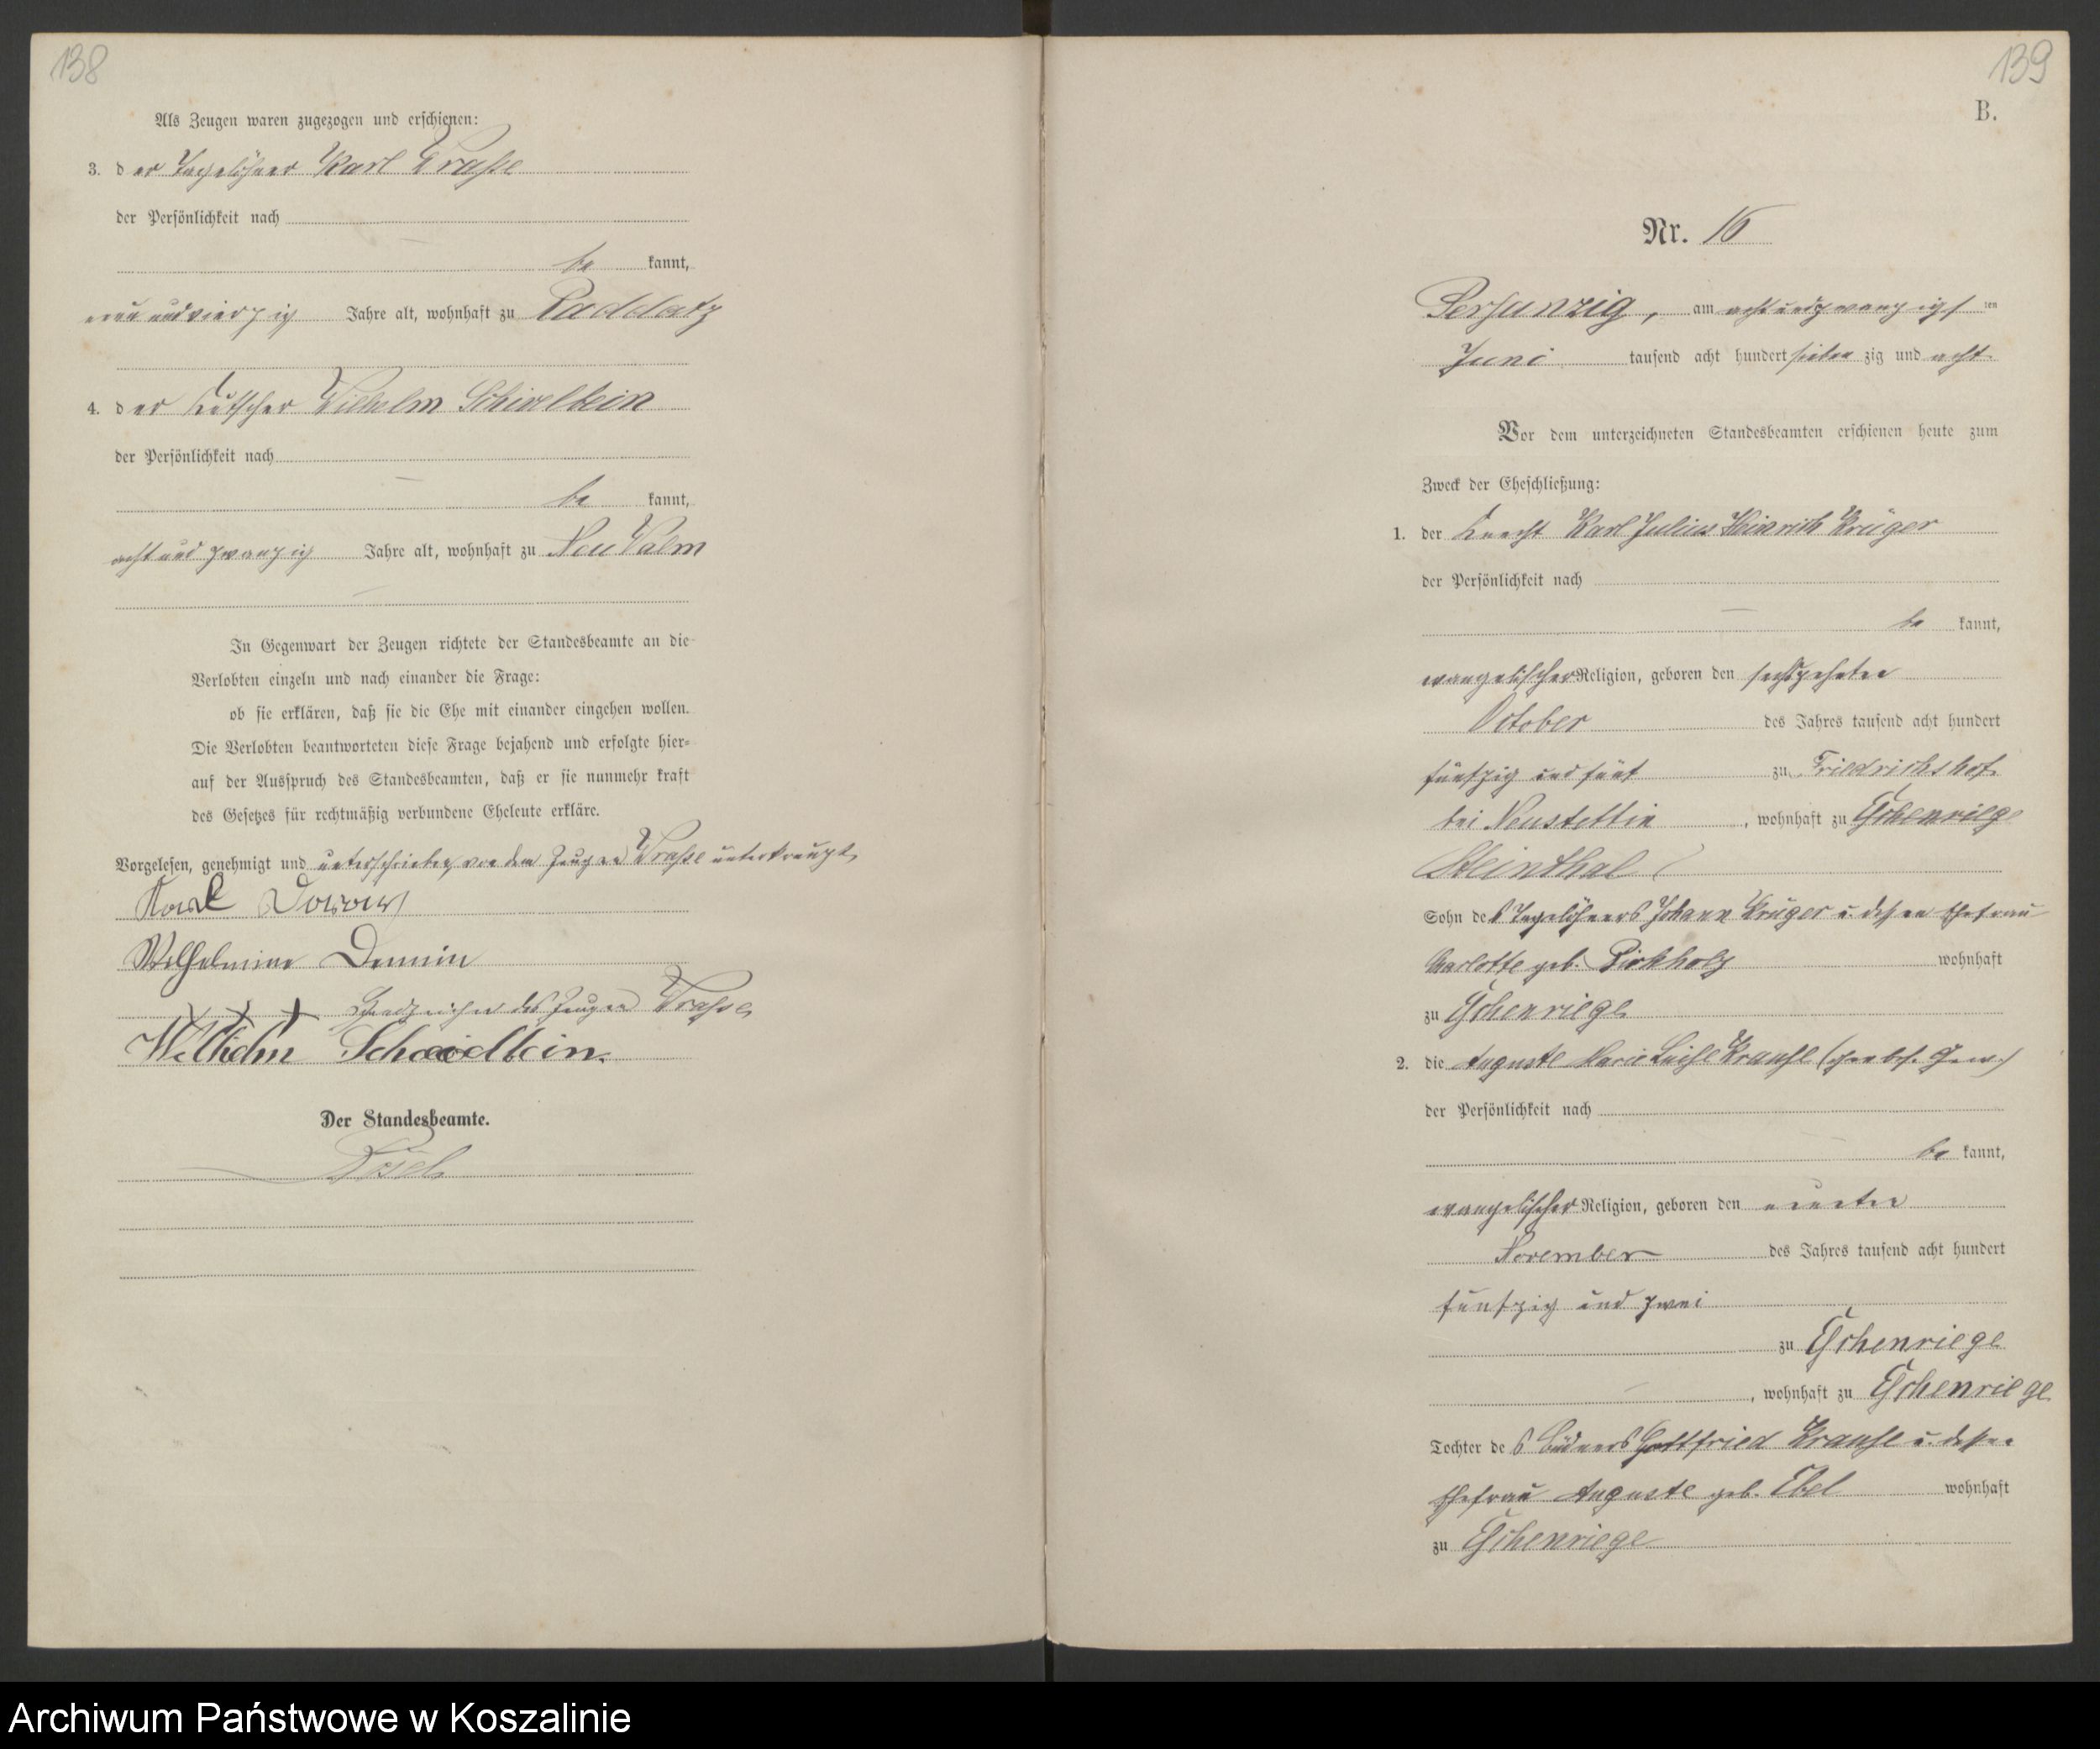 138
Als Zeugen waren zugezogen und erschienen:
3. der Tagelöhner Karl Krahse
der Persönlichkeit nach
be kannt,
neunundvierzig Jahre alt, wohnhaft zu Raddatz
4. der Kutscher Wilhelm Schivelbein
der Persönlichkeit nach
be kannt,
achtundzwanzig Jahre alt, wohnhaft zu Neu Valm
In Gegenwart der Zeugen richtete der Standesbeamte an die
Verlobten einzeln und nach einander die Frage:
ob sie erklären, daß sie die Ehe mit einander eingehen wollen.
Die Verlobten beantworteten diese Frage bejahend und erfolgte hier=
auf der Ausspruch des Standesbeamten, daß er sie nunmehr kraft
des Gesetzes für rechtmäßig verbundene Eheleute erkläre.
Vorgelesen, genehmigt und unterschrieben, von dem Zeugen Krahse unterkreuzt
Karl Dorow
Wilhelmine Demin
XXX Handzeichen des Zeugen Krahse
Wilhelm Schievelbein.
Der Standesbeamte.
139
B.
Nr. 16
Persanzig, am achtundzwanzigsten
Juni tausend acht hundert sieben zig und acht
Vor dem unterzeichneten Standesbeamten erschienen heute zum
Zweck der Eheschließung:
1. der Knecht Karl Julius Heinrich Krüger
der Persönlichkeit nach
be kannt,
evangelischer Religion, geboren den sechszehnten
October des Jahres tausend acht hundert
fünfzig und fünf zu Friedrichshof
bei Neustettin, wohnhaft zu Eschenriege
Steinthal
Sohn des Tagelöhners Johann Krüger u. dessen Ehefrau
Charlotte geb. Pirkholz wohnhaft
zu Eschenriege
2. die Auguste Marie Luise Krause
der Persönlichkeit nach
be kannt,
evangelischer Religion, geboren den neunten
November des Jahres tausend acht hundert
fünfzig und zwei
zu Eschenriege
, wohnhaft zu Eschenriege
Tochter des Büdners Gottfried Krause u. dessen
Ehefrau Auguste geb. Ebel wohnhaft
zu Eschenriege
Archiwum Państwowe w Koszalinie